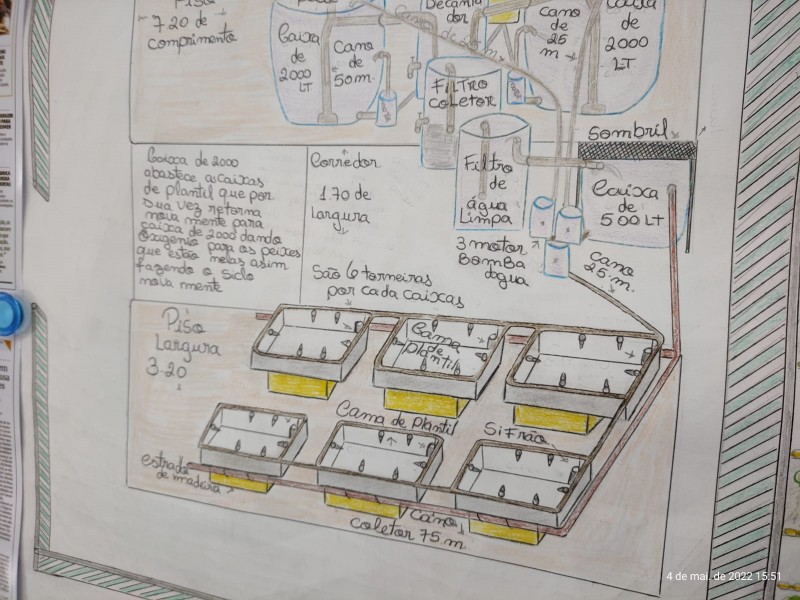 Piso
720 de
comprimento
Caixa
de
2000
LT
Cano
de
50m
Decanta
dor
Cano
de
25
m
Caixa
de
2000
LT
FILTRO
COLETOR
Sombril
Caixa de 2000
abastece as caixas
de plantil que por
sua vez retorna
nova mente para
caixa de 2000 dando
Oxigenio para os peixes
que estão nelas asim
fazendo o siclo
nova mente
Corredor
1.70 de
Largura
Filtro
de
água
Limpa
Caixa
de
500 LT
3 motor
Bomba
dágua
Cano
25 m.
São 6 torneiras
por cada caixas
Piso
Largura
3.20
Cama
Plantil
Cama de plantil
Sifrão
estrado
de madeira
Cano
coletor 75 m
4 de mai. de 2022 15:51